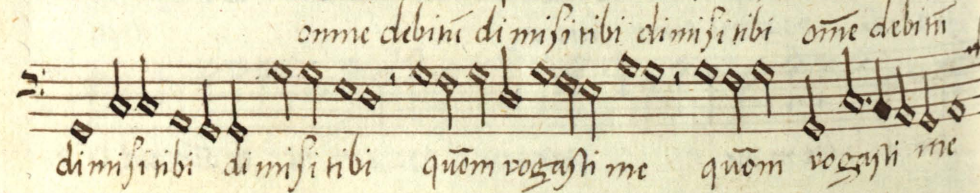 omne debitū dimisi tibi dimisi tibi om̄e debitū
dimisi tibi dimisi tibi quōm rogasti me quōm rogasti me